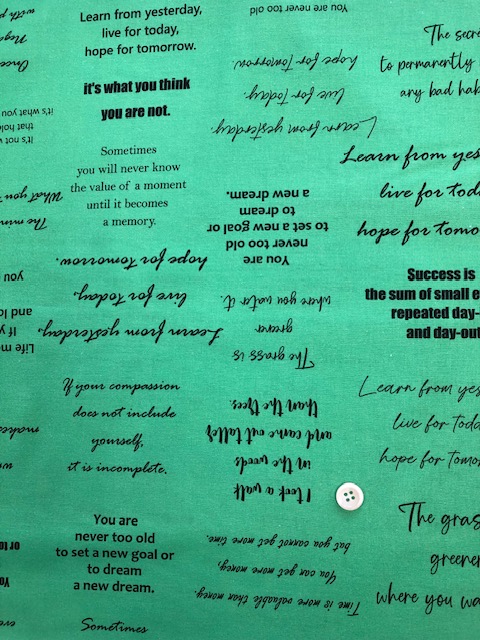 Learn from yesterday,
live for today,
hope for tomorrow.
it's what you think
you are not.
Sometimes
you will never know
the value of a moment
until it becomes
a memory.
Learn from yesterday,
live for today,
hope for tomorrow.
If your compassion
does not include
yourself,
it is incomplete.
You are
never too old
to set a new goal or
to dream
a new dream.
Sometimes
You are never too old
Learn from yesterday,
live for today,
hope for tomorrow.
You are
never too old
to set a new goal or
to dream
a new dream.
The grass is
greener
where you water it.
I took a walk
in the woods
and came out taller
than the trees.
Time is more valuable than money.
You can get more money,
but you cannot get more time.
The
to permanently
any bad
Learn from
live for
hope for
Success is
the sum of small
repeated
and
Learn from
live for
hope for
The
where you
Once
with
it's not
that
it's what you
The
What you
Life
If
and
you
makes
or